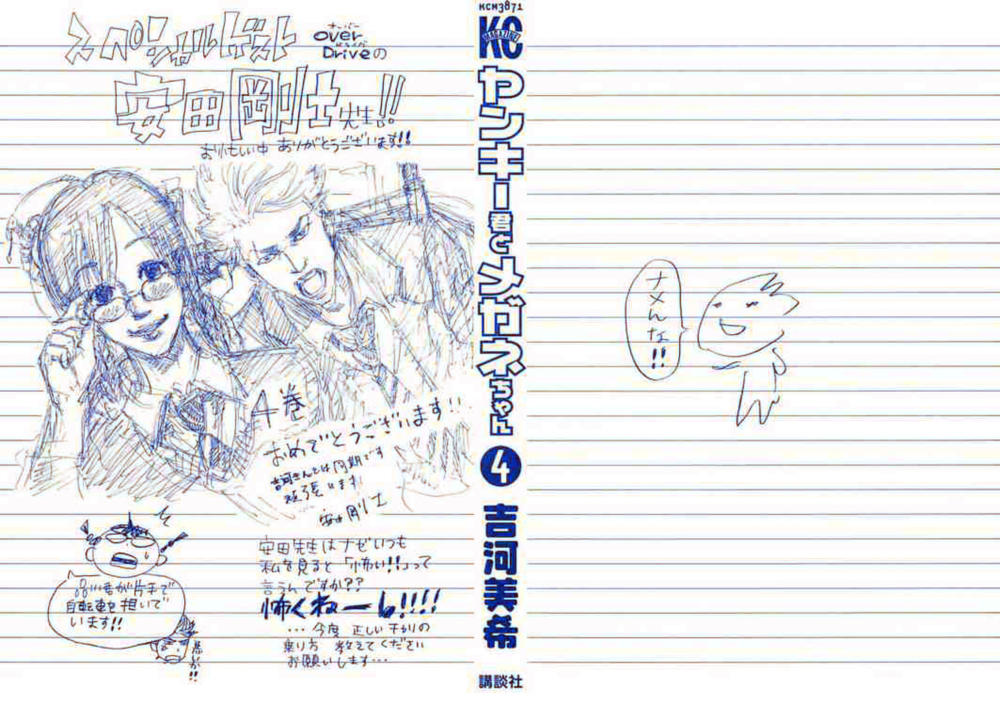 スペシャルゲスト
オーバー
over
ドライヴ
Driveの
安田剛士先生!!
お忙しい中 ありがとうございます!!
4巻
おめでとうございます!!
吉河さんとは同期です
頑張います!
安田剛士
品川君が片手で
自転車を担いで
います!!
安田先生はナゼいつも
私を見ると「怖い!!」って
言うんですか??
怖くねーし!!!!
…今度 正しいチャリの
乗り方 教えてください
お願いします…
KCM3871
KC
MAGAZINE
ヤンキー君とメガネちゃん
4
吉河美希
講談社
ナメんな!!